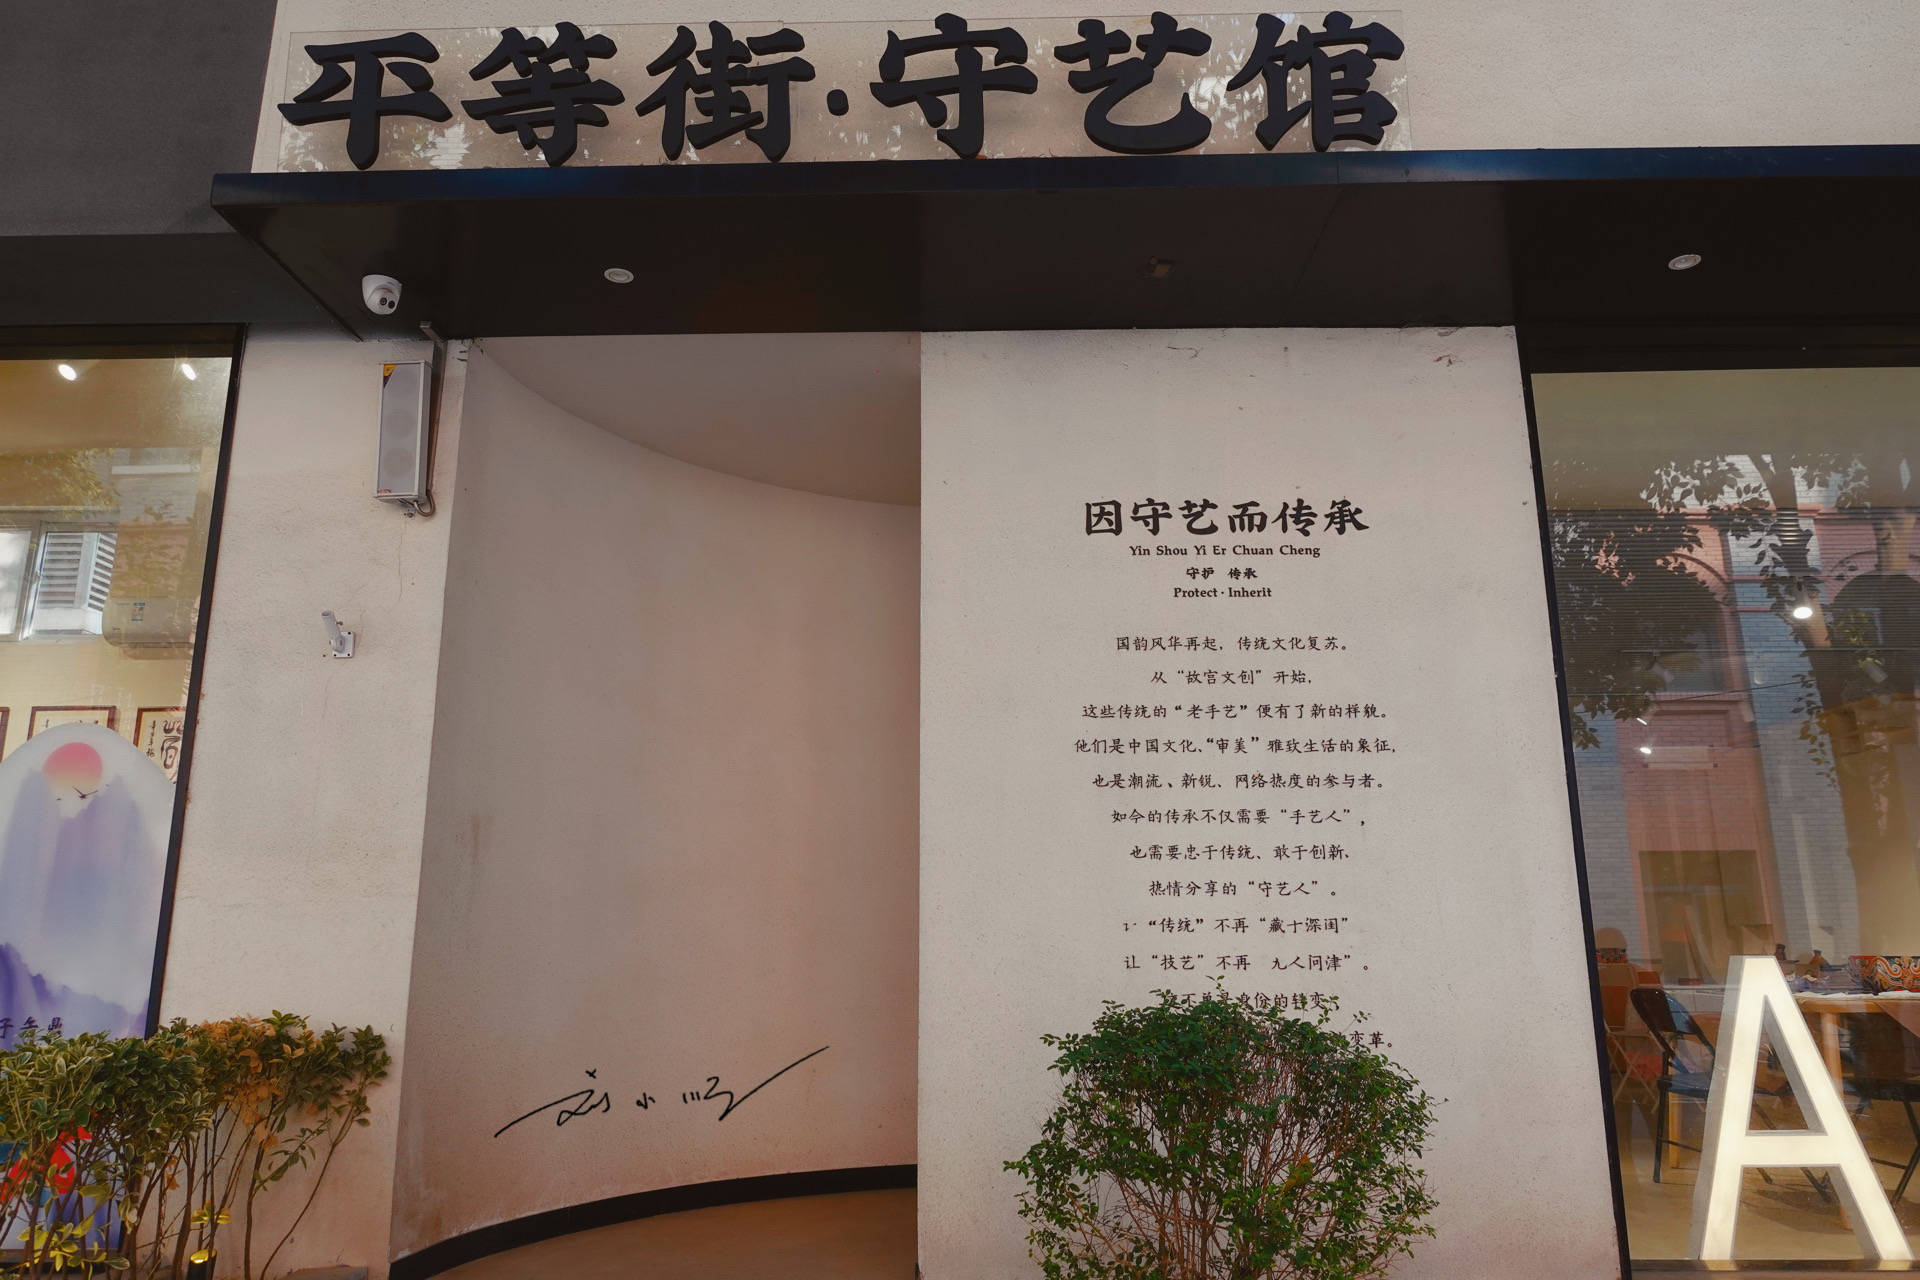 平等街·守艺馆
因守艺而传承
Yin Shou Yi Er Chuan Cheng
守护 传承
Protect·Inherit
国韵风华再起，传统文化复苏。
从“故宫文创”开始，
这些传统的“老手艺”便有了新的样貌。
他们是中国文化、“审美”雅致生活的象征，
也是潮流、新锐、网络热度的参与者。
如今的传承不仅需要“手艺人”，
也需要忠于传统、敢于创新、
热情分享的“守艺人”。
“传统”不再“藏十深闺”
让“技艺”不再 九人问津”。
不单是身份的转变，
变革。
A